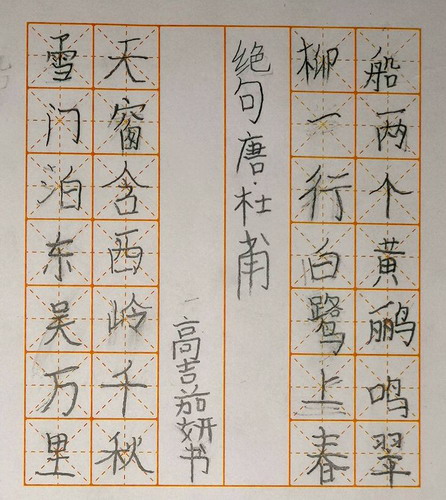 船两个黄鹂鸣翠
柳一行白鹭上春
绝句唐·杜甫
高吉茄妍书
天窗含西岭千秋
雪门泊东吴万里